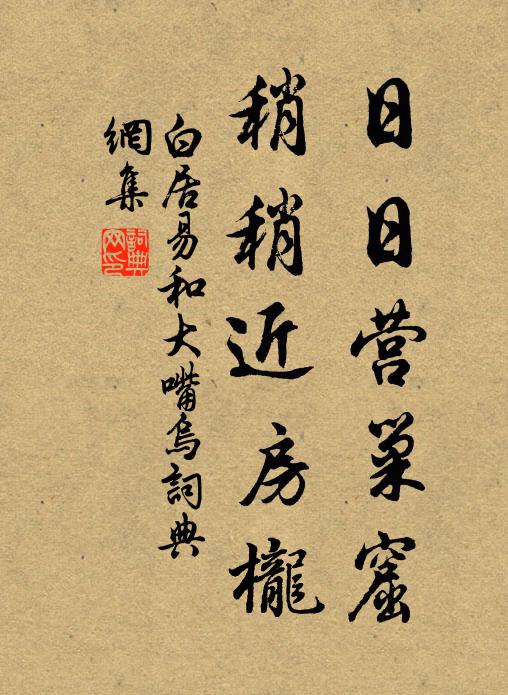 日日营巢窟
稍稍近房櫳
白居易和大嘴烏詞典
網集
詞典
网印